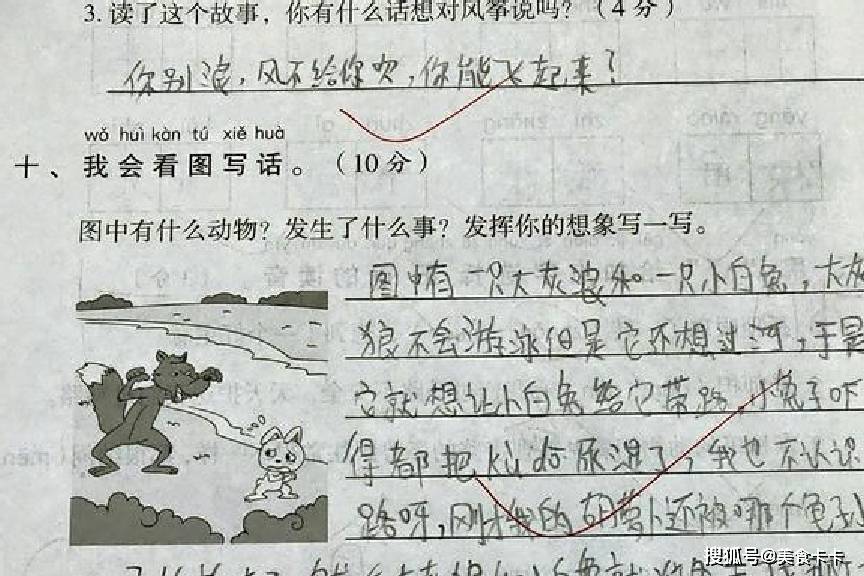 3. 读了这个故事，你有什么话想对风筝说吗？（4分）
你别浪，风不给你吹，你能飞起来？
wǒ huì kàn tú xiě huà
十、我会看图写话。（10分）
图中有什么动物？发生了什么事？发挥你的想象写一写。
图中有一只大灰浪和一只小白兔，大灰
狼不会游泳但是它还想过河，于是
它就想让小白兔给它带路，小兔子吓
得都把kù do尿湿了，我也不认识
路呀，刚才我的胡萝卜还被哪个龟孙
搜狐号@美食卡卡